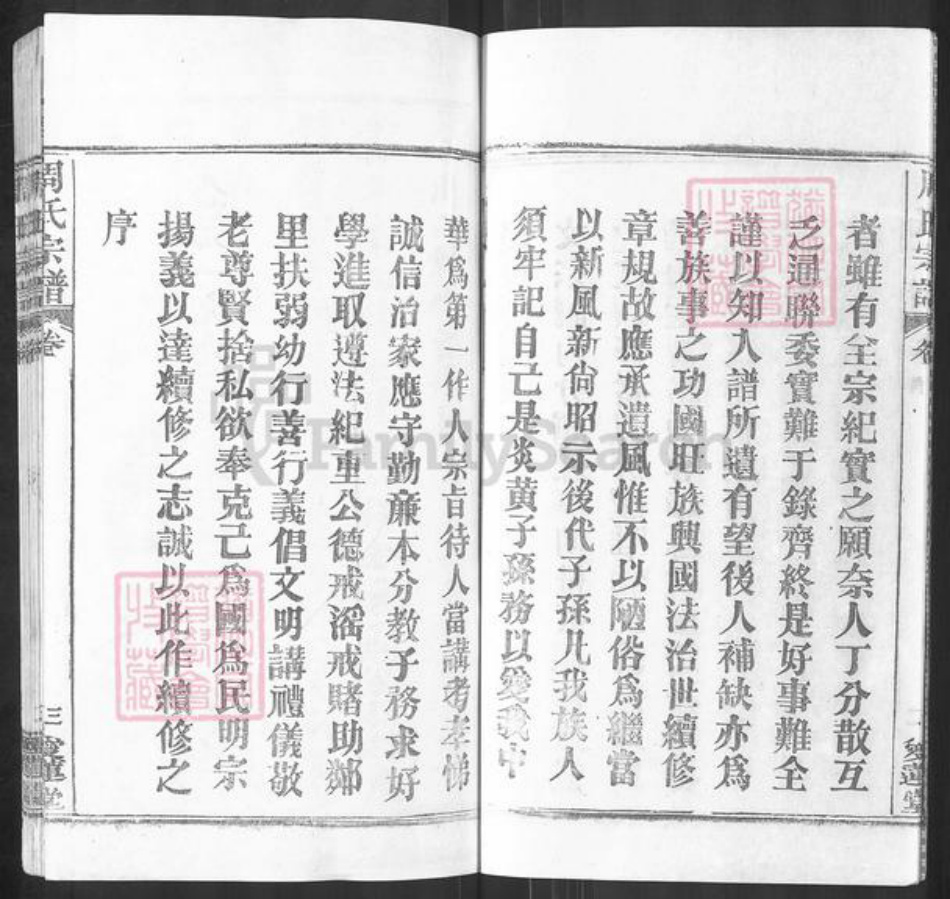 者雖有全宗紀實之願奈人丁分散互
乏通聯委實難于錄齊終是好事難全
謹以知入譜所遺有望後人補缺亦爲
善族事之功國旺族興國法治世續修
章規故應承遺風惟不以陋俗爲繼當
以新風新尙昭示後代子孫凡我族人
須牢記自己是炎黃子孫務以愛我中
華爲第一作人宗旨待人當講考孝悌
誠信治家應守勤亷本分教子務求好
學進取遵法紀重公德戒滛戒賭助鄰
里扶弱幼行善行義倡文明講禮儀敬
老尊賢捨私欲奉克己爲國爲民明宗
揚義以達續修之志誠以此作續修之
序
周氏宗譜
卷
三
愛蓮堂
FamilySearch